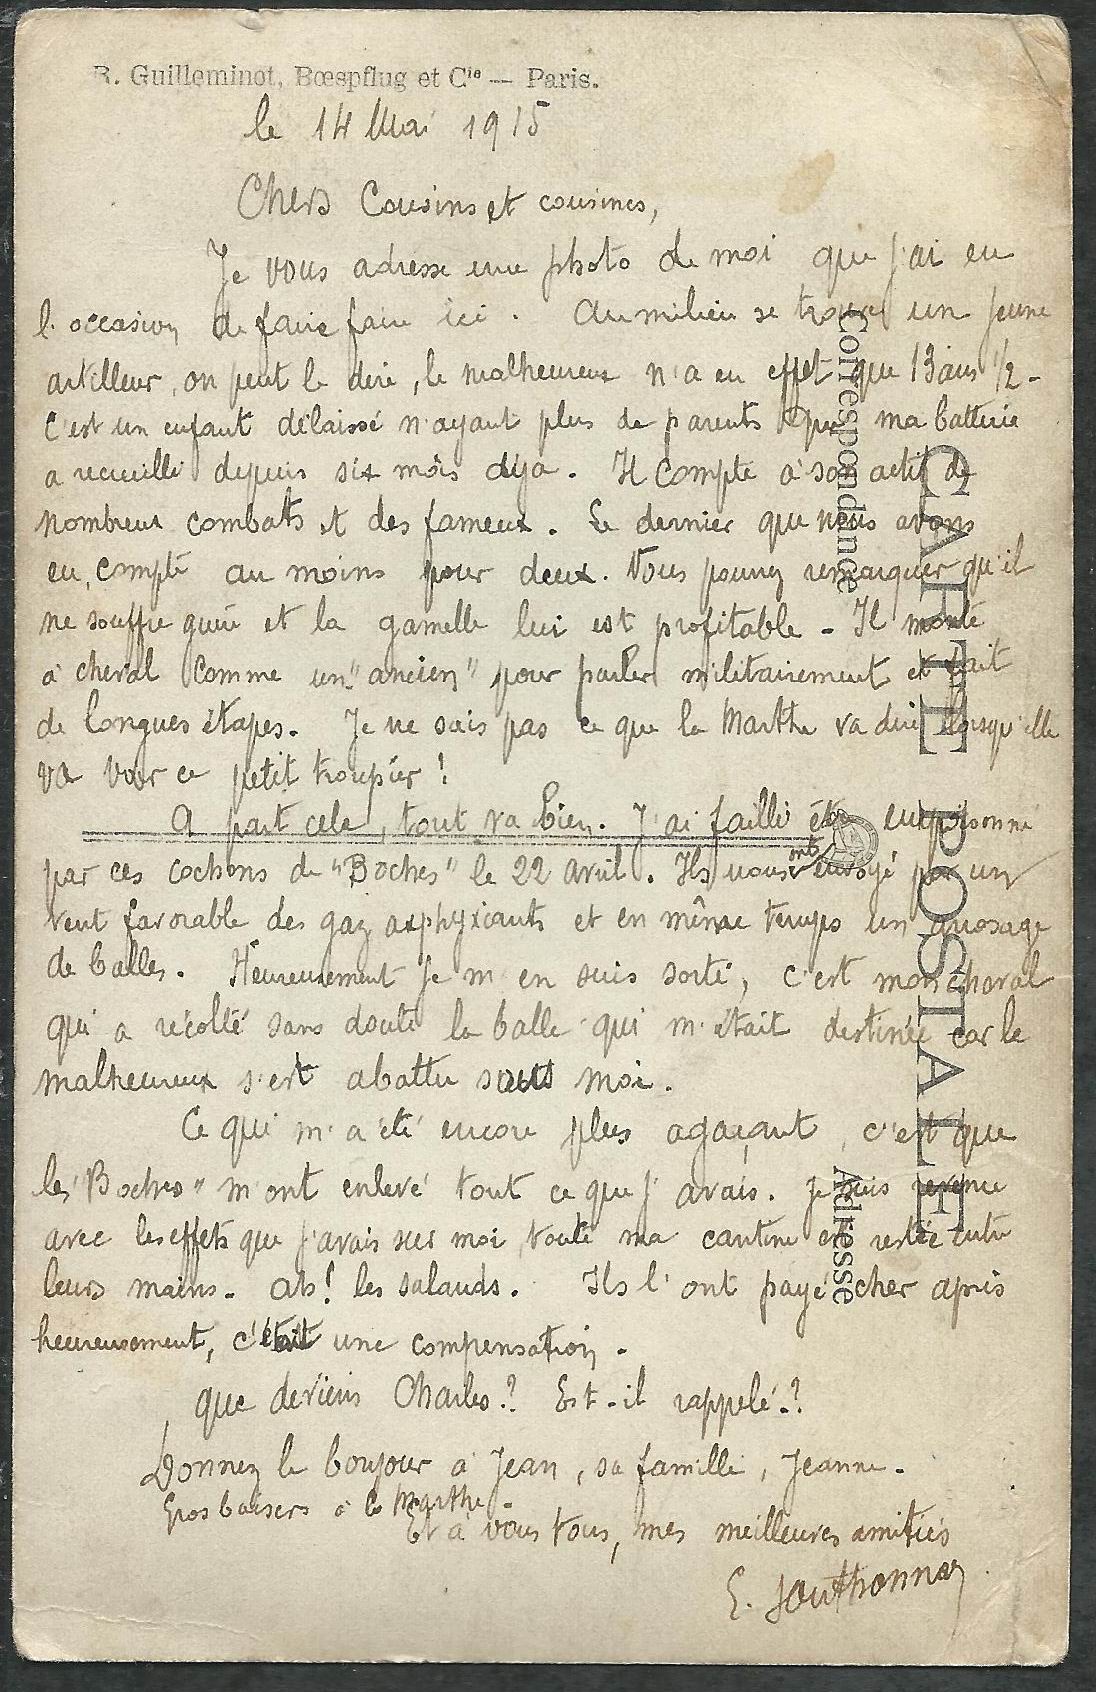 R. Guilleminot, Bœspflug et Cie — Paris.
le 14 Mai 1915
Chers Cousins et cousines,
Je vous adresse une photo de moi que j'ai eu
l'occasion de faire faire ici. Au milieu se trouve un jeune
artilleur, on peut le dire, le malheureux n'a en effet que 13 ans 1/2 -
C'est un enfant délaissé n'ayant plus de parents que ma batterie
a recueilli depuis six mois déja. Il compte à son actif de
nombreux combats et des fameux. Le dernier que nous avons
eu, compte au moins pour deux. Vous pourrez remarquer qu'il
ne souffre guère et la gamelle lui est profitable - Il monte
à cheval comme un "ancien" pour parler militairement et fait
de longues étapes. Je ne sais pas ce que la Marthe va dire lorsqu'elle
va voir ce petit troupier !
A part cela, tout va bien. J'ai failli être empoisonné
par ces cochons de "Boches" le 22 avril. Ils nous ont envoyé par un
vent favorable des gaz asphyxiants et en même temps un arrosage
de balles. Heureusement je m'en suis sorti, c'est mon cheval
qui a récolté sans doute la balle qui m'était destinée car le
malheureux s'est abattu sous moi.
Ce qui m'a été encore plus agaçant, c'est que
les "Boches" m'ont enlevé tout ce que j'avais. Je suis revenu
avec les effets que j'avais sur moi, toute ma cantine est restée entre
leurs mains. Ah! les salauds. Ils l'ont payé cher après
heureusement, c'était une compensation.
que deviens Charles? Est-il rappelé.?
Donnez le bonjour à Jean, sa famille, Jeanne.
Gros baisers à la Marthe.
Et à vous tous, mes meilleures amitiés
E. Jouthonnez
CARTE POSTALE
Correspondance
Adresse